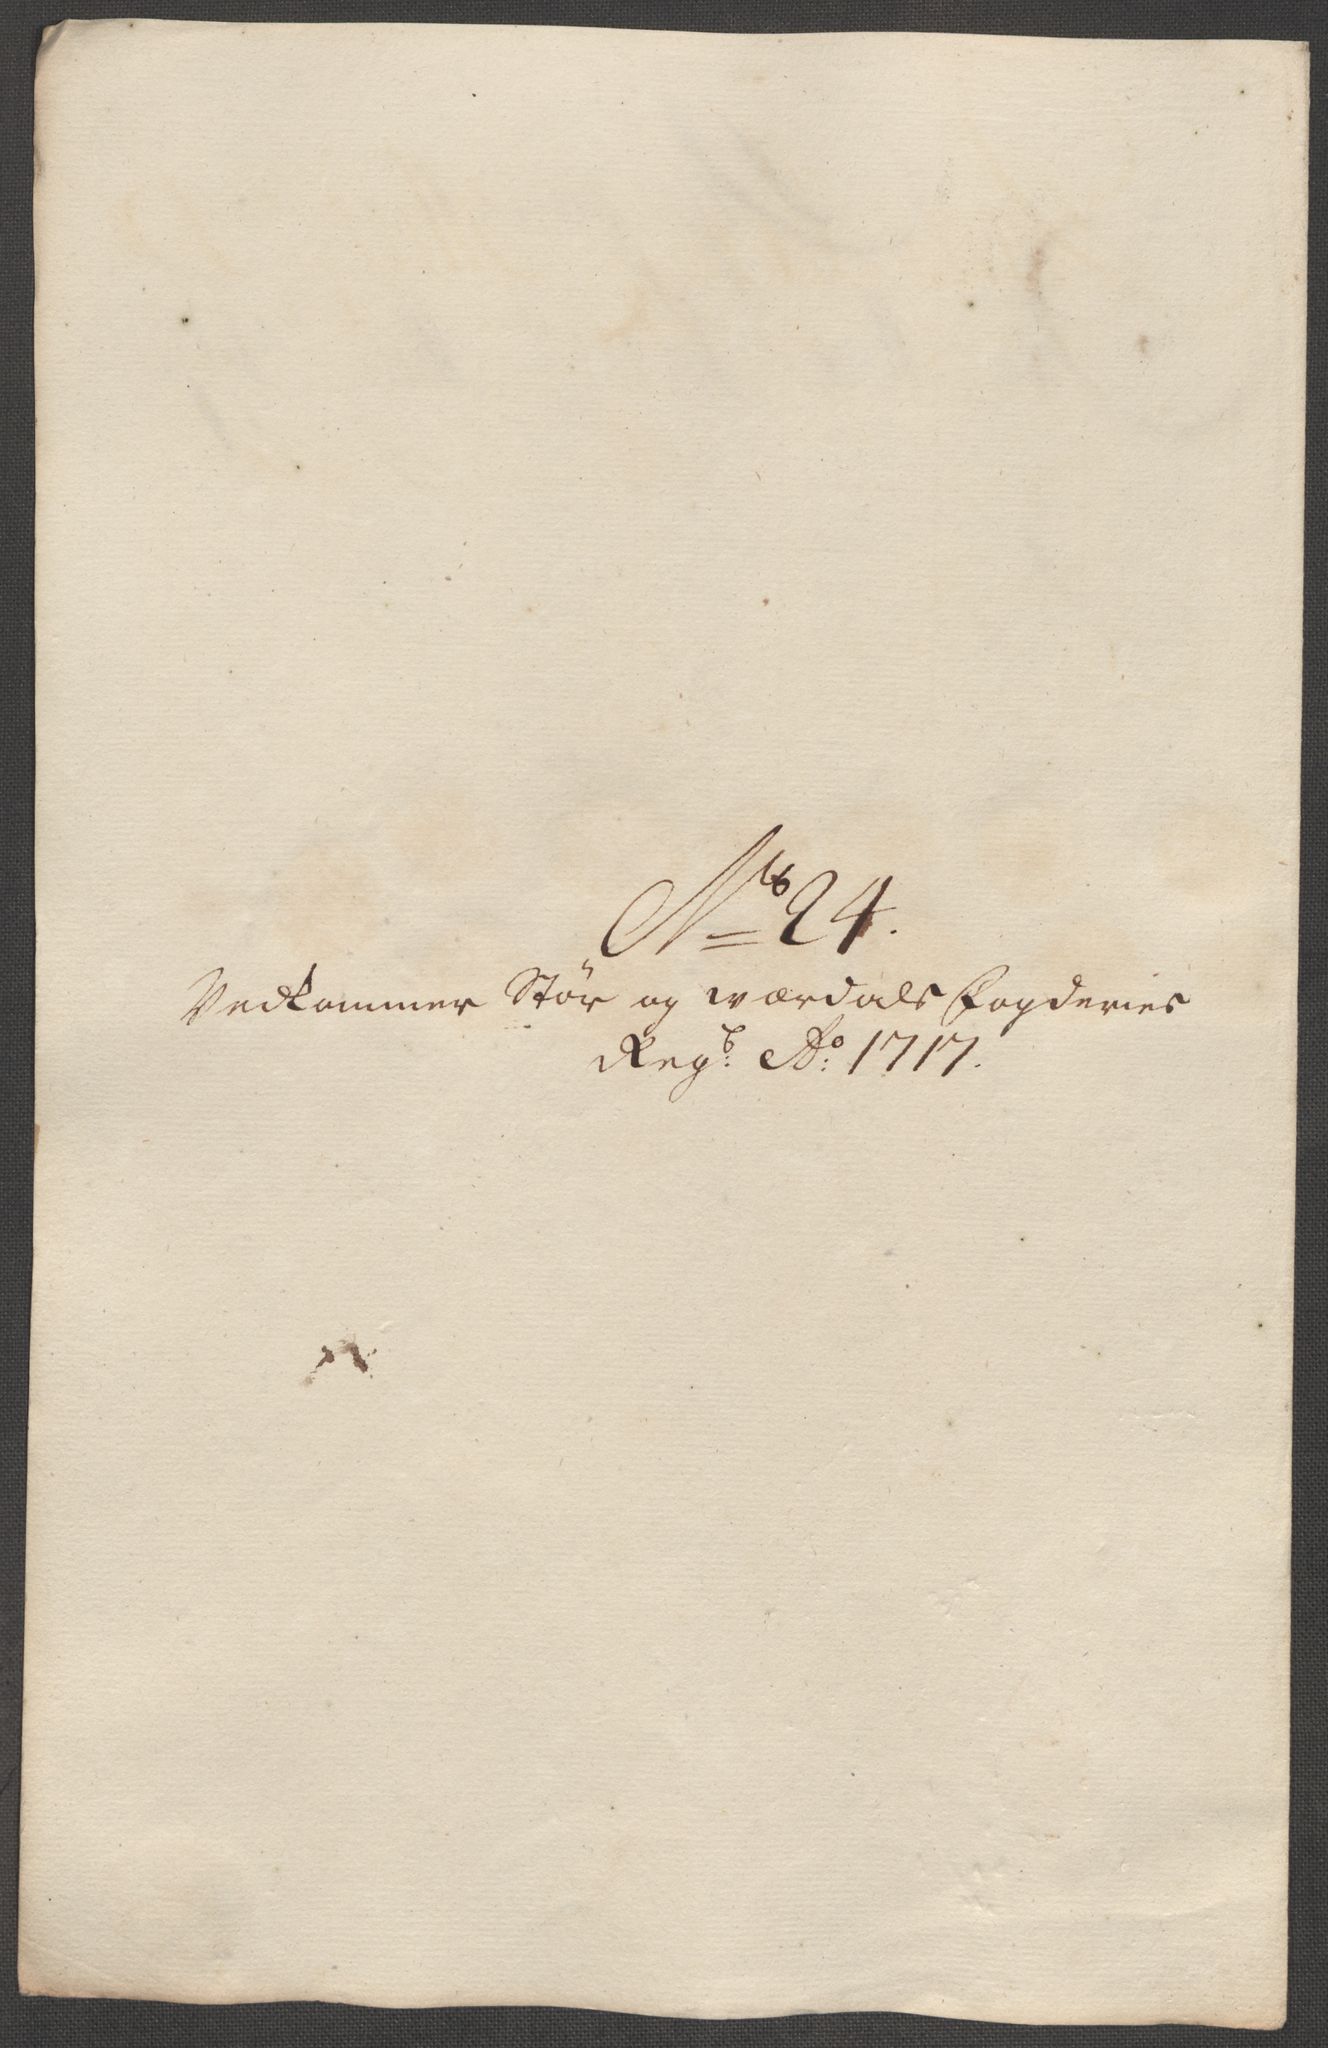 No 24.
Vedkommer Stør og værdals fogderies
Regb: Ao: 1717.